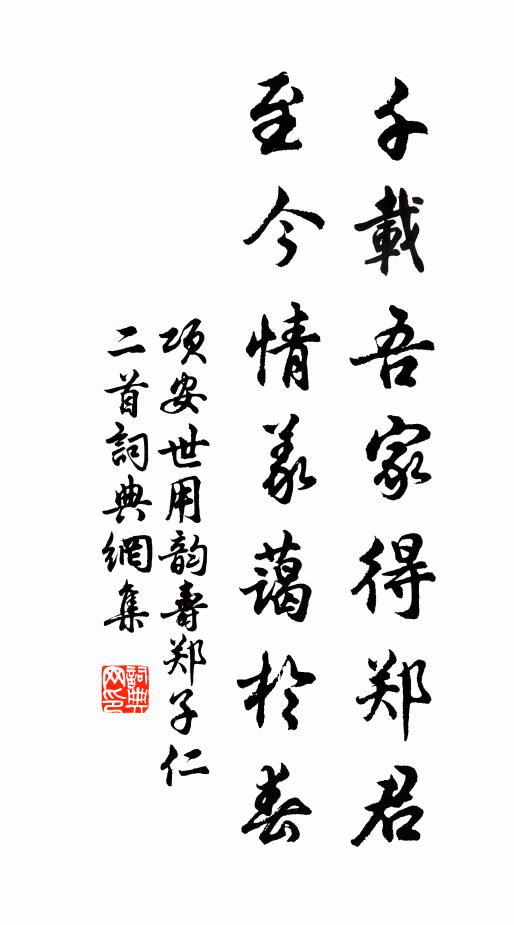 千載吾家得郑君
至今情义蔼於春
项安世用韵寿郑子仁
二首詞典網集
詞典
网印